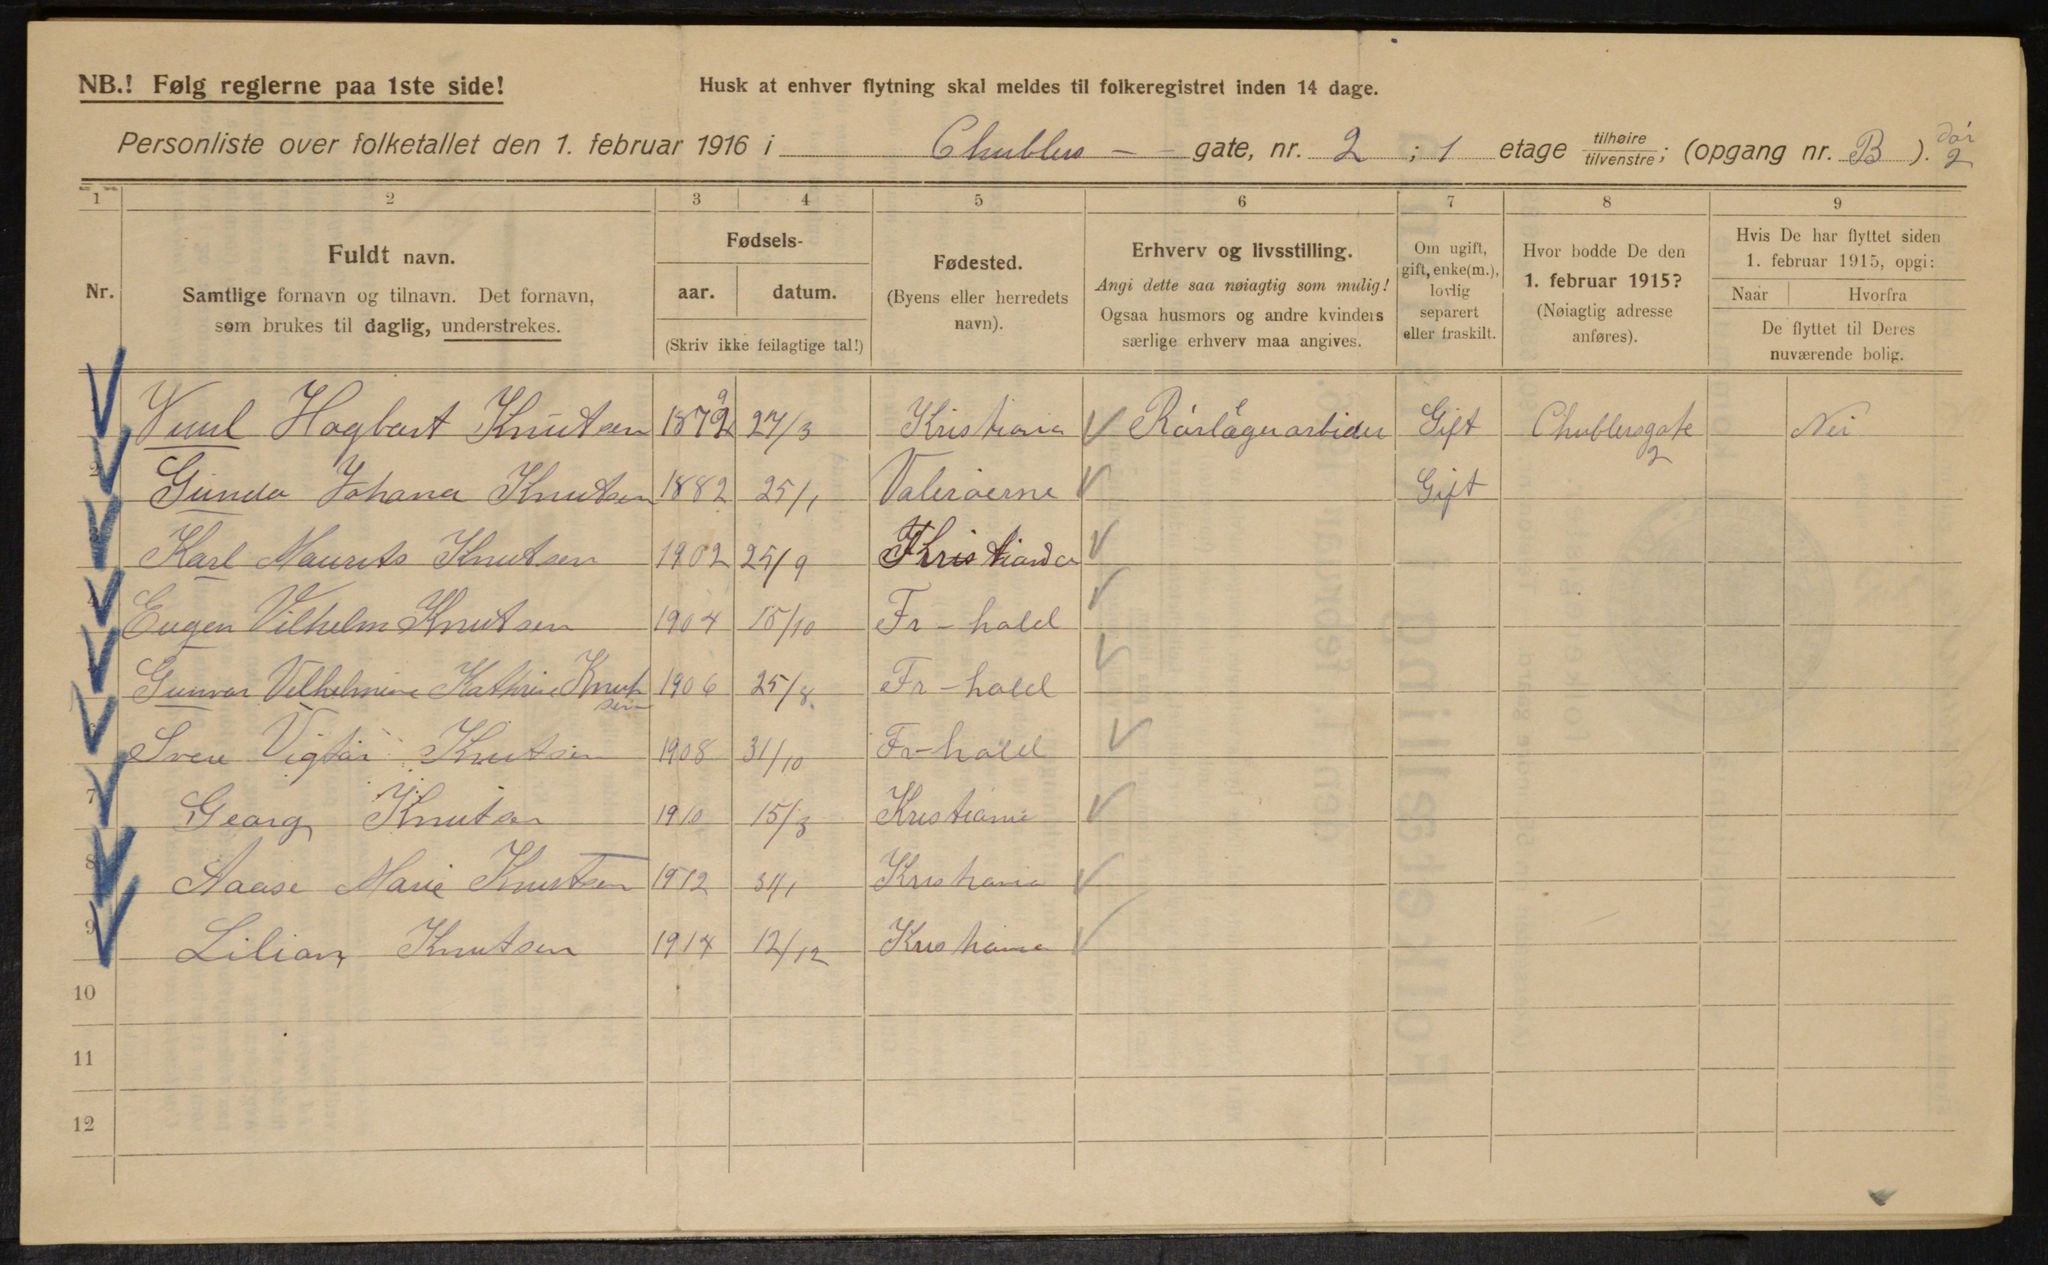 NB.! Følg reglerne paa 1ste side!
Husk at enhver flytning skal meldes til folkeregistret inden 14 dage.
Personliste over folketallet den 1. februar 1916 i Chublers - - gate, nr. 2 ; 1 etage tilhøire/tilvenstre; (opgang nr. B ). dør 2
1 2 3 4 5 6 7 8 9
Nr.
Fuldt navn.
Samtlige fornavn og tilnavn. Det fornavn,
som brukes til daglig, understrekes.
Fødsels-
aar. datum.
(Skriv ikke feilagtige tal!)
Fødested.
(Byens eller herredets
navn).
Erhverv og livsstilling.
Angi dette saa nøiagtig som mulig!
Ogsaa husmors og andre kvinders
særlige erhverv maa angives.
Om ugift,
gift, enke(m.),
lovlig
separert
eller fraskilt.
Hvor bodde De den
1. februar 1915?
(Nøiagtig adresse
anføres).
Hvis De har flyttet siden
1. februar 1915, opgi:
Naar Hvorfra
De flyttet til Deres
nuværende bolig.
Hagbart Knutsen 1879 27/3 Kristiana Rørlægerarbider Gift Chublersgate 2 Nei
2 Gunda Johana Knutsen 1882 25/1 Valerøerne Gift
3 Karl Maurits Knutsen 1902 25/9 Kristiania
4 Eugen Vilhelm Knutsen 1904 15/10 Fr-hald
Gunvor Vilhelmine Kathrine Knutsen 1906 25/8 Fr-hald
6 Sverre Vigtor Knutsen 1908 31/10 Fr-hald
7 Georg Knutsen 1910 15/3 Kristiania
8 Aaase Marie Knutsen 1912 31/1 Kristiania
9 Lilian Knutsen 1914 12/12 Kristiania
10
11
12